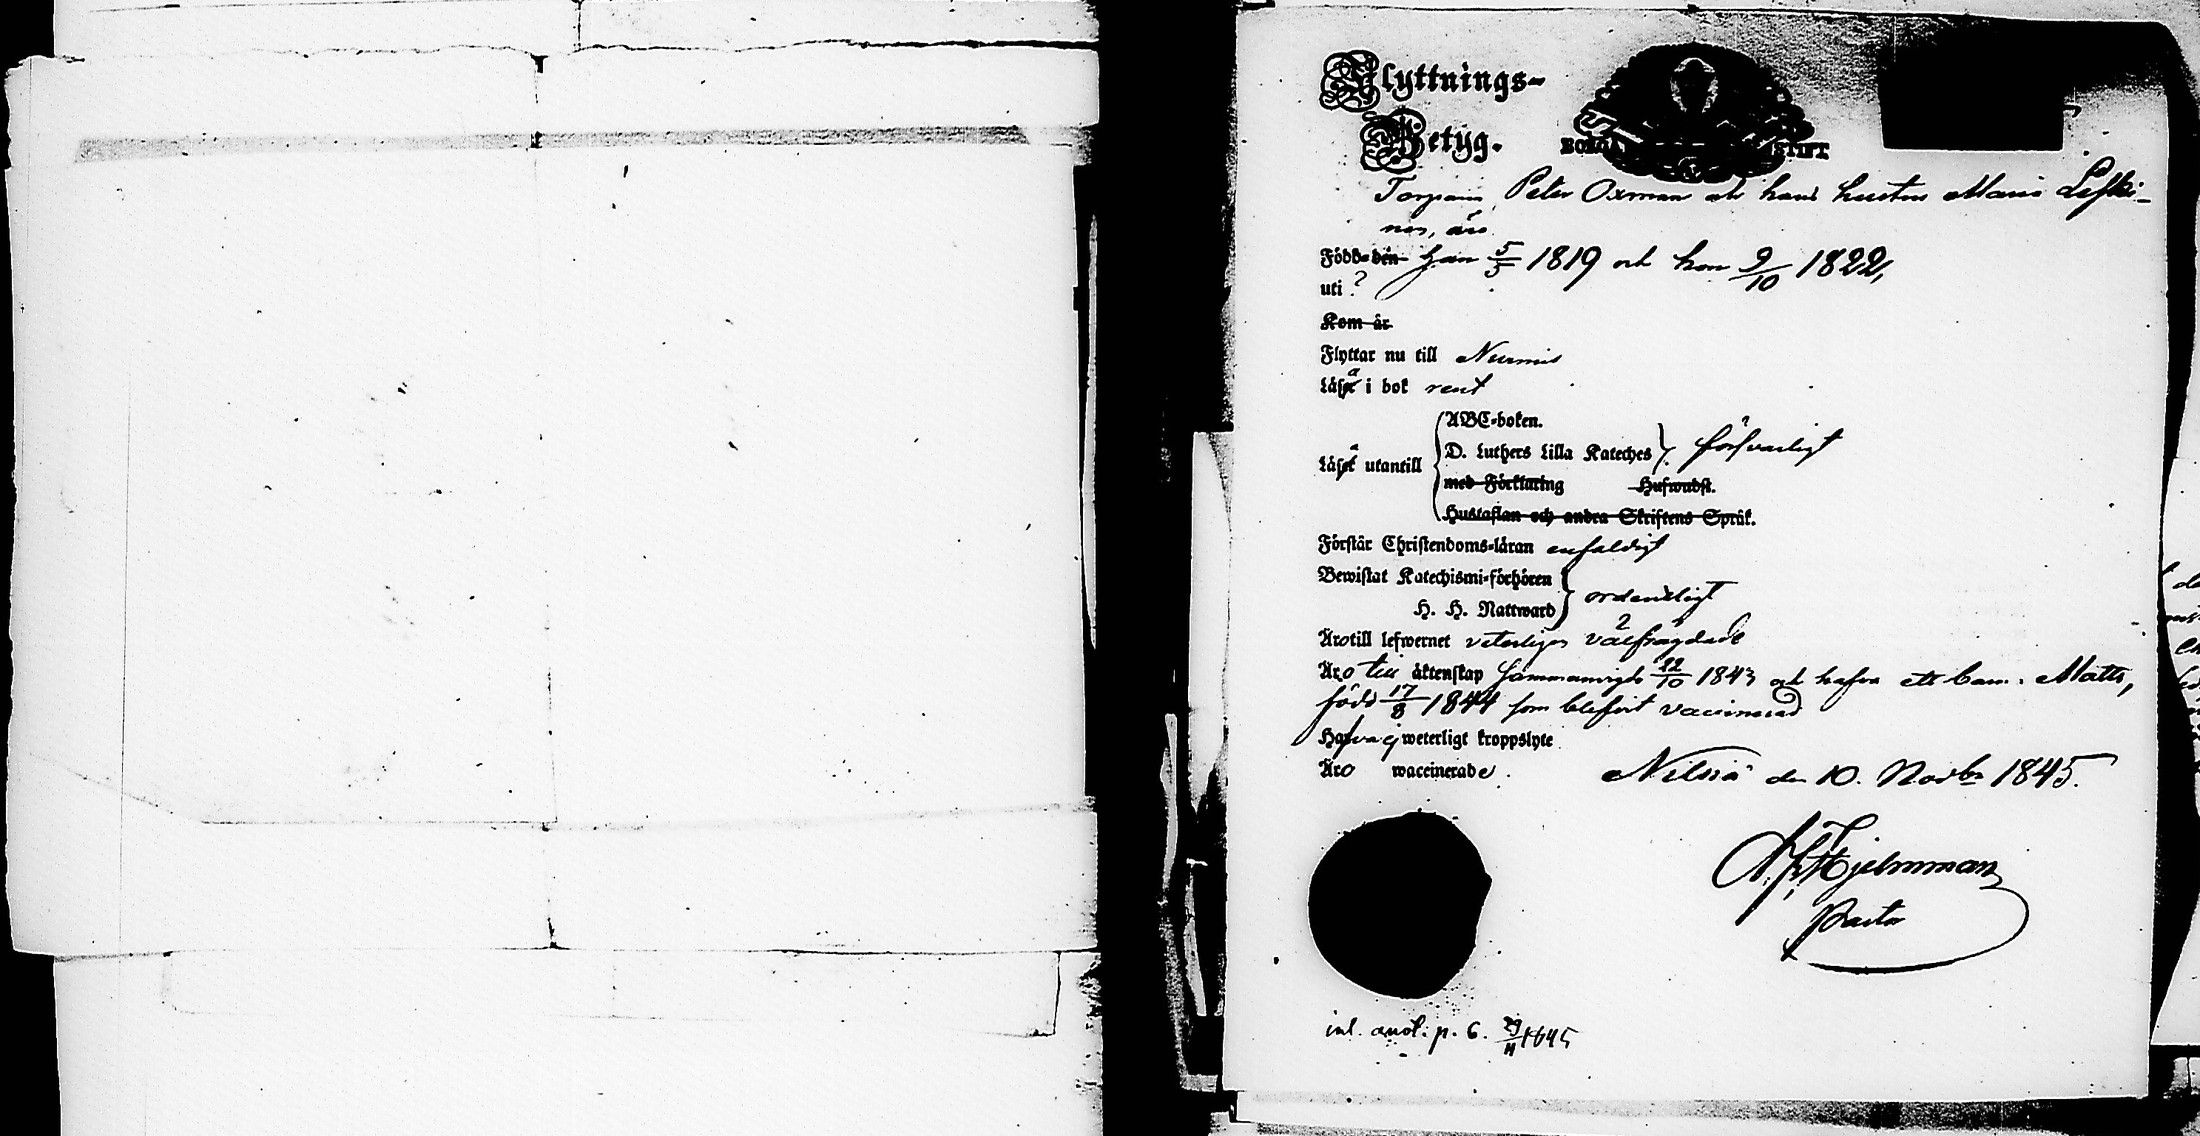 Flyttnings-
Betyg.
BORGÅ STIFT
Torparen Peter Oxman och hans hustru Maria Leski-
nen, äro
Född den han 5/5 1819 och hon 9/10 1822,
uti ?
Kom år
Flyttar nu till Nurmis
Läsa i bok rent
ABC-boken.
Läsa utantill D. Luthers Lilla Kateches försvarligt
med Förklaring Hufwudst.
Hustaflan och andra Skriftens Språk.
Förstår Christendoms-läran enfaldigt
Bewistat Katechismi-förhören
H. H. Nattward ordentligt
Äro till lefwernet veterligen välfrägdade
Äro till äktenskap sammanvigde 22/10 1843 och hafva ett barn: Matts,
född 17/8 1844 som blifvit vaccinerad
Hafva ej weterligt kroppslyte
Äro waccinerade.
Nilsiä den 10. Novbr 1845.
Hjelmman
Pastor
inl. anot. p. 6. 23/11 1845